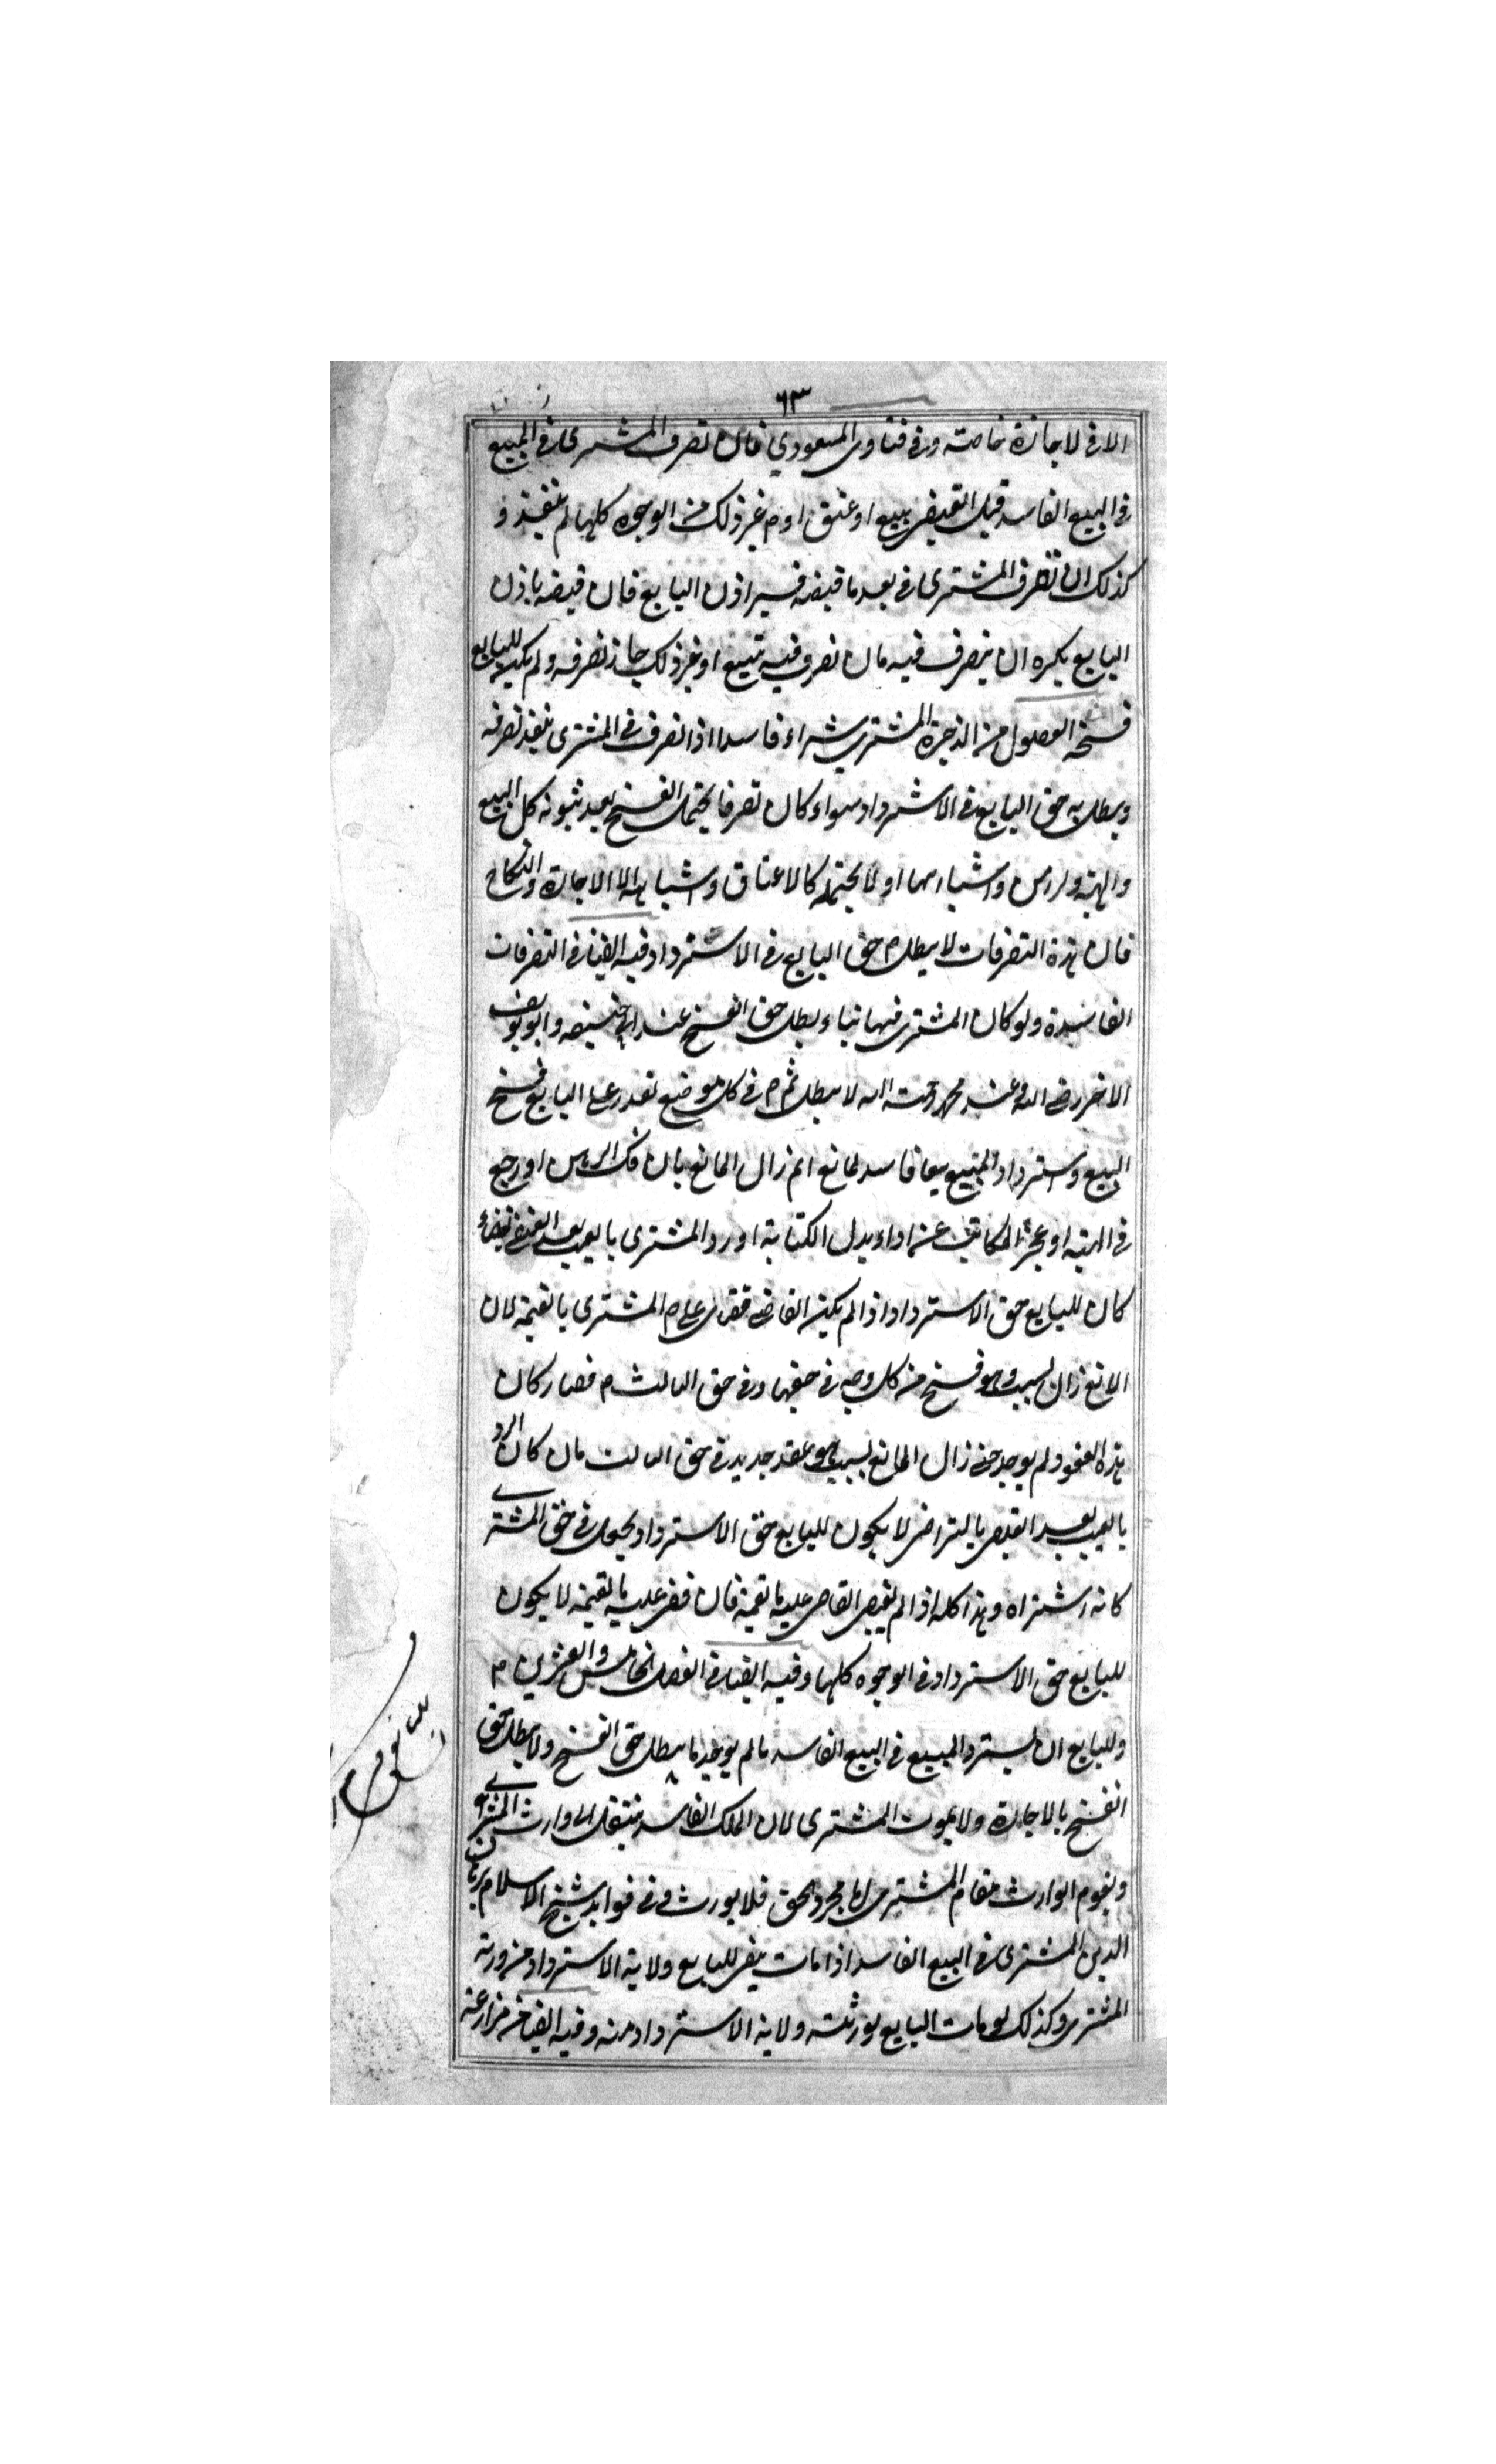 ٦٣
الا فى لاجازة خاصته وفى فتاوى المسعودي فان تصرف المشترى فى المبيع
فى البيع الفاسد قبل القبض ببيع او عتق او م غير ذلك من الوجوه كلها لم ينفذ و
كذلك ان تصرف المشترى فى بعد ما قبضه فسير اذن البايع فان قبضه باذن
البايع يكره ان يتصرف فيه فان تصرف فيه ببيع او غير ذلك جاز تصرفه ولم يكن للبايع
فسخه الفصول من الذخيرة المشترى شراء فاسدا اذا تصرف فى المشترى ينفذ تصرفه
ويبطل به حق البايع فى الاسترداد سواء كان تصرفا يحتمل الفسخ بعد ثبوته كل البيع
والهبة والرهن واشباههما او لا يحتمله كالاعتاق واشباهه الا الاجارة والنكاح
فان هذه التصرفات لا يبطل م حق البايع فى الاسترداد وفيه ايضا فى التصرفات
الفاسدة ولو كان المشترى فيها بناء يبطل حق الفسخ عند ابى حنيفه وابو يوسف
الاخر رضى الله عنه محمد رحمة الله لا يبطل ثم م فى كل موضع تعذر على البايع فسخ
البيع واسترداد المبيع بيعا فاسد لمانع ثم زال المانع بان فك الرهن او رجع
فى الهبه او عجز المكاتب عن اداء بدل الكتابة او رد المشترى بالعيب بعد القبض بقضاء
كان للبايع حق الاسترداد اذا لم يكن القاضى قضى على م المشترى بالقيمة لان
المانع زال بسبب وهو فسخ من كل وجه فى حقهما وفى حق الثالث م فصار كان
هذه العقود لم يوجد حتى زال المانع بسبب هو عقد جديد فى حق الثالث فان كان الرد
بالعيب بعد القبض بالتراضى لا يكون للبايع حق الاسترداد ويجعل فى حق المشترے
كانه اشتراه وهذا كله اذا لم يقض القاضى عليه بالقيمة فان قضى عليه بالقيمة لا يكون
للبايع حق الاسترداد فى الوجوه كلها وفيه ايضا فى الفصل الخامس والعشرين م
وللبايع ان يسترد المبيع فى البيع الفاسد ما لم يوجد ما يبطل حق الفسخ ولا يبطل حق
الفسخ بالاجارة ولا بموت المشترى لان الملك الفاسد ينتقل الى وارث المشترے
ويقوم الوارث مقام المشترى اما مجرد الحق فلا يورث وفى فوايد شيخ الاسلام برهان
الدين المشترى فى البيع الفاسد اذا مات يبقى للبايع ولاية الاسترداد من ورثة
المشترى وكذلك لو مات البايع لورثته ولاية الاسترداد منه وفيه ايضا من مزارعة